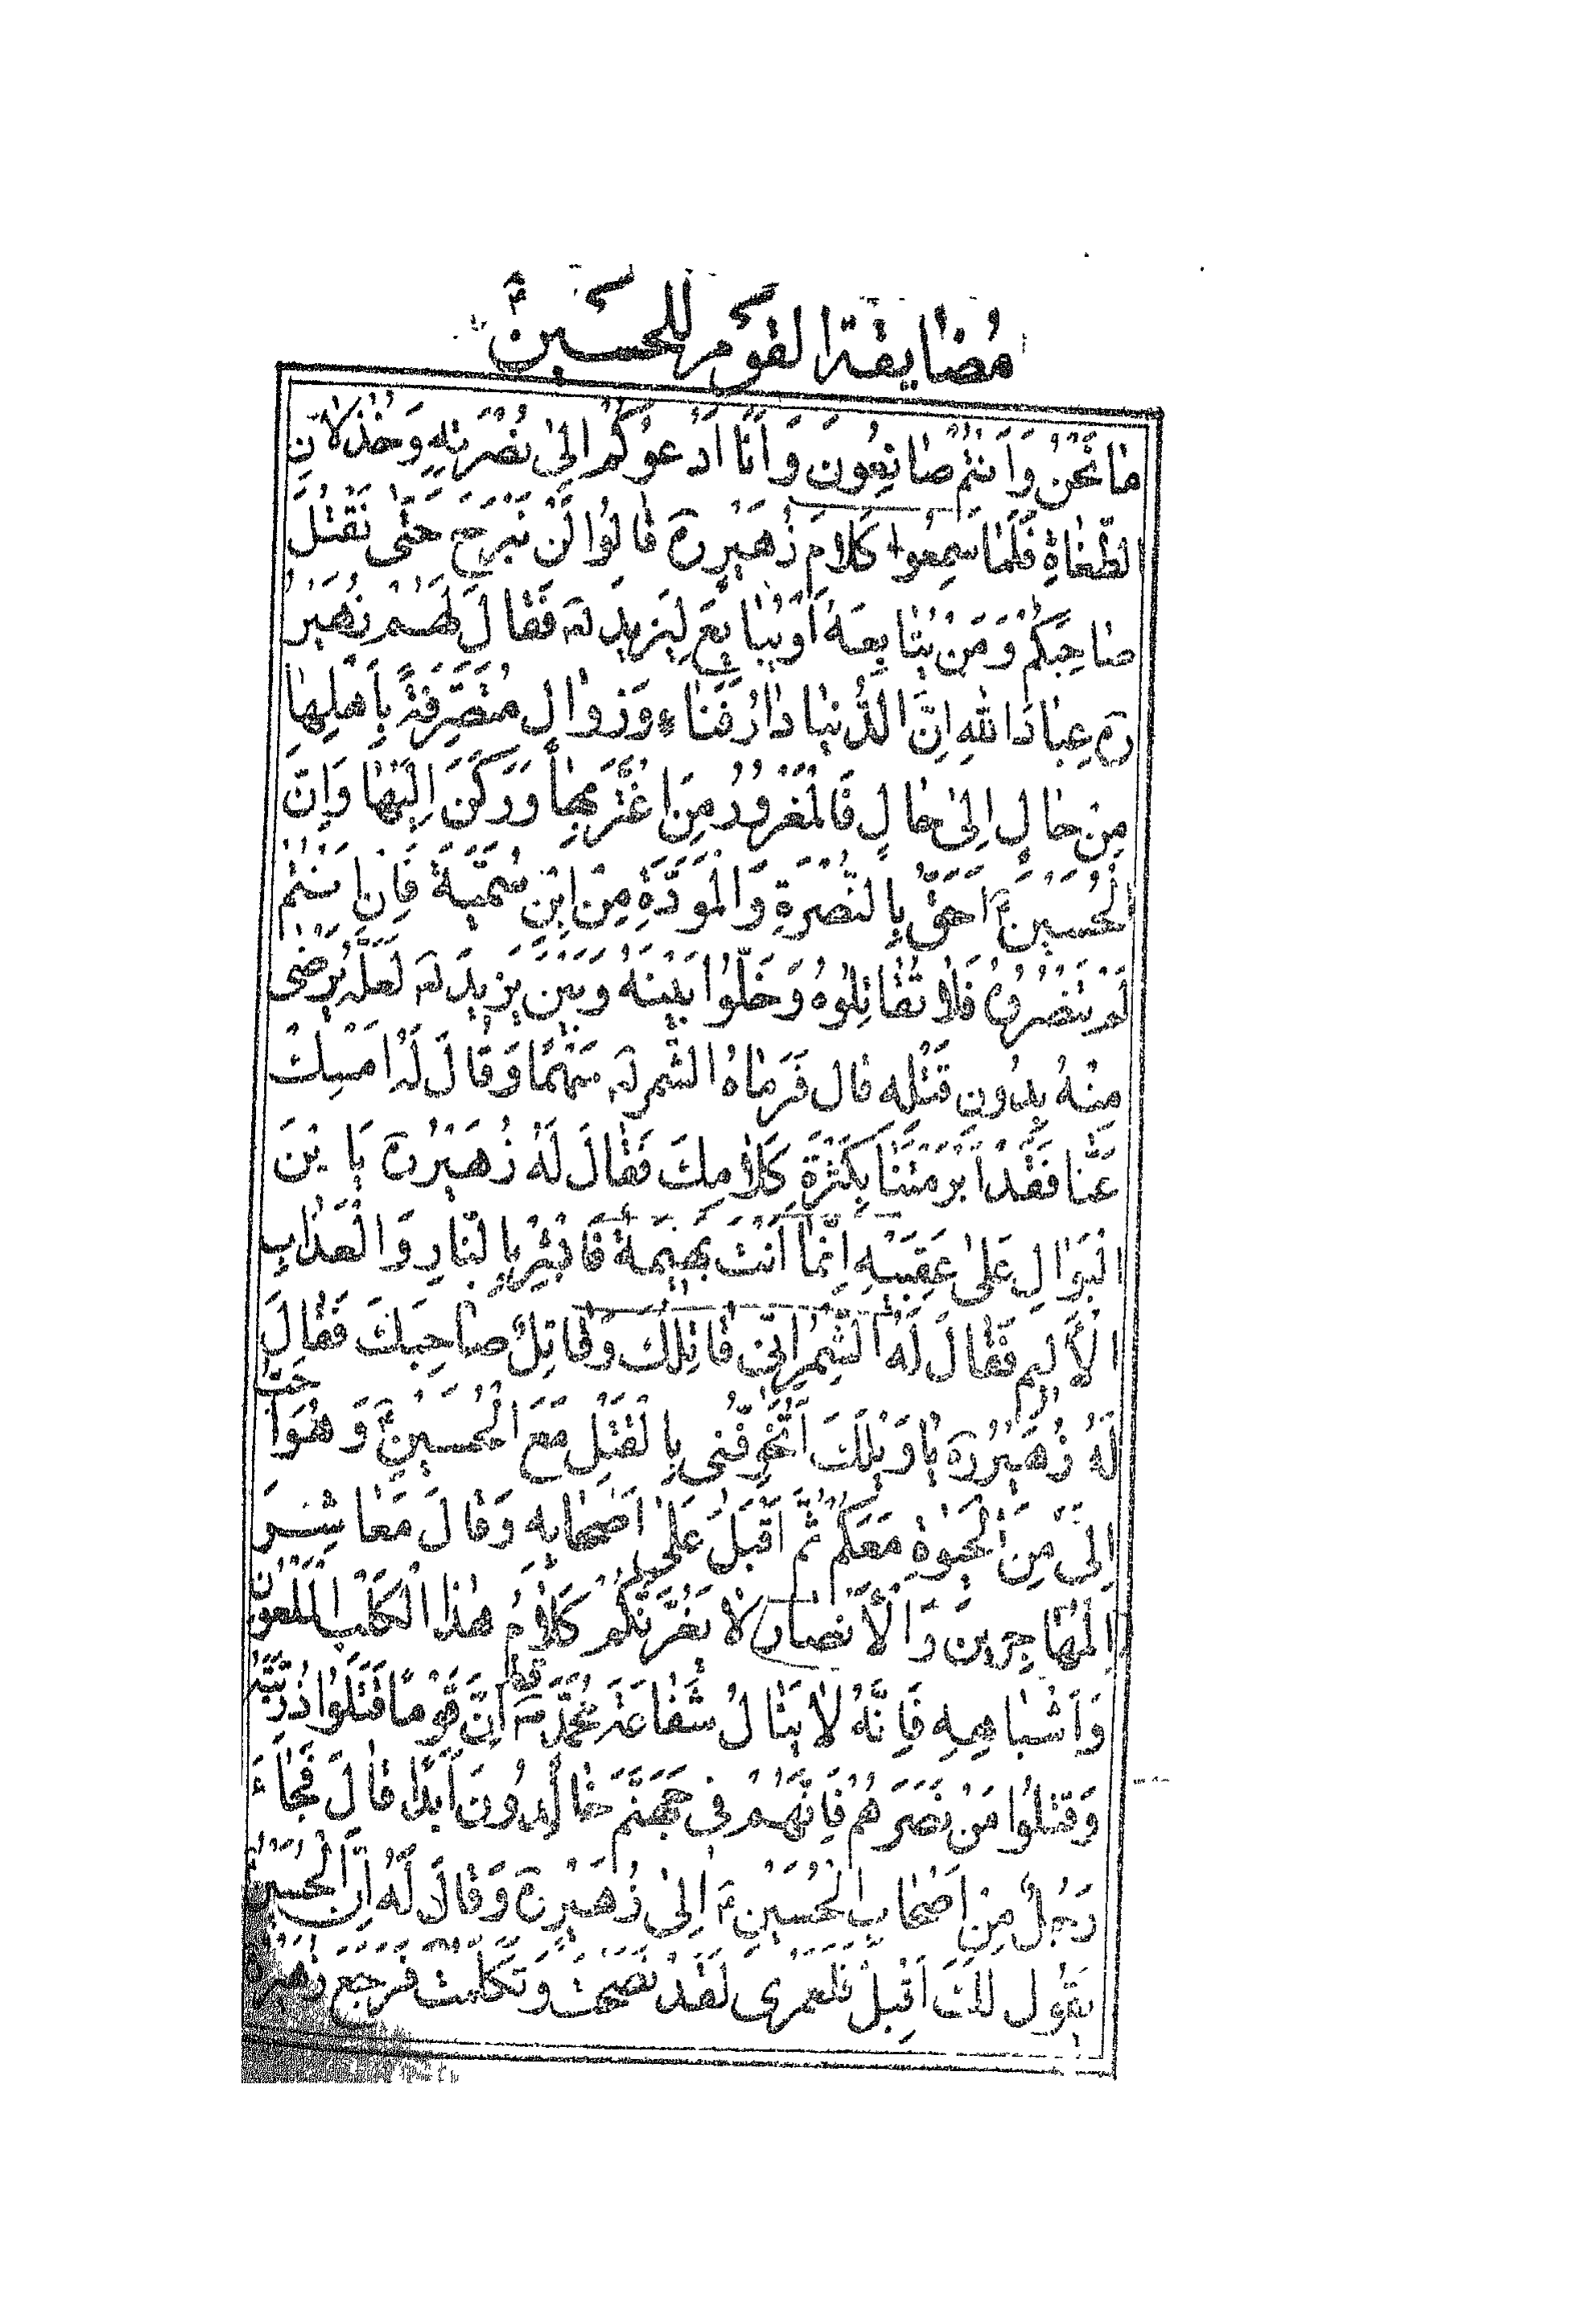 مُضٰايقة القَوْمِ لِلحُسَيْنِ ع
مٰا نَحْنُ وَاَنتُمْ صٰانِعُونَ وَاَنَا اَدْعوُكُمْ اِلىٰ نُصْرَتِهِ وَخُذْلاٰنِ
الطُّغٰاةِ فَلَمّٰا سَمِعُوا كَلاٰمَ زُهَيْرٍ ره قٰالُوا لَنْ نَبْرَحَ حَتّٰى نَقْتُلَ
صٰاحِبَكُمْ وَمَنْ يُتٰابِعهُ اَوْ يُبٰايِعَ لِيَزيدَ لع فَقٰالَ لَهُمْ زُهَيْرُ
ره عِبٰادَ اللهِ اِنَّ الدُّنيٰا دٰارُ فَنٰاءٍ وَزَوٰالٍ مُتَصَرِّفَةً بِاَهْلِهٰا
مِنْ حٰالٍ اِلىٰ حٰالٍ فَالْمَغْرُورُ مِنَ اغْتَرَّ بِهٰا وَرَكَنَ اِلَيْهٰا وَاِنَّ
الْحُسَيْنَ ع اَحَقُّ بِالنُّصْرَةِ وَالْمَوَدَّةِ مِنَ ابْنِ سُمَيَّةَ فَاِن اَنْتُمْ
لَمْ تَنْصُرُوهُ فَلاٰ تُقٰاتِلُوهُ وَخَلُّوا بَيْنَهُ وَبَيْنَ يَزيدَ لع لَعَلَّهُ يَرْضىٰ
مِنْهُ بِدُونِ قَتْلِهِ قال فَرَمٰاهُ الشِّمْر لع سَهْمًا وَقٰالَ لَهُ اَمْسِكْ
عَنّٰا فَقَدْ اَبْرَمْتَنٰا بِكَثْرَةِ كَلاٰمِكَ فَقٰالَ لَهُ زُهَيْرٌ ره يَا بْنَ
الْبَوّٰالِ عَلىٰ عَقِبَيْهِ اِنَّمٰا اَنْتَ بَهيمَةٌ فَاَبْشِرْ بِالنّٰارِ وَالْعَذٰابِ
الْاَليمِ فَقٰالَ لَهُ الشِّمْرُ اِنّى قٰاتِلُكَ وَقٰاتِلٌ صٰاحِبَكَ فَقٰالَ
لَهُ زُهَيْرٌ ره يٰا وَيْلَكَ اَتُخَوِّفُنى بِالْقَتْلِ مَعَ الْحُسَيْنِ ع وَهُوَ اَحَبُّ
اِلَىَّ مِنَ الْحَيٰوةِ مَعَكُمْ ثُمَّ اَقْبَلَ عَلىٰ اَصْحٰابِهِ وَقٰالَ مَعٰاشِرَ
الْمُهٰاجِرينَ وَالْاَنْصٰارِ لاٰ يَغُرَّنَّكُمْ كَلاٰمُ هٰذَا الْكَلْبِ الْمَلْعُونِ
وَاَشْبٰاهِهِ فَاِنَّهُ لاٰ يَنٰالُ شَفٰاعَةَ مُحَمَّدٍ ص اِنَّ قَوْمًا قَتَلُوا ذُرِّيَّتَهُ
وَقَتَلُوا مَنْ نَصَرَهُمْ فَاِنَّهُمْ فى جَهَنَّمَ خٰالِدُونَ اَبَدًا قٰالَ فَجٰاءَ
رَجُلٌ مِنْ اَصْحٰابِ الْحُسَيْنِ ع اِلىٰ زُهَيْرٍ ره وَقٰالَ لَهُ اِنَّ الْحُسَيْنَ
يَقُولُ لَكَ اَقْبِلْ فَلَعَمْرى لَقَدْ نَصَحْتَ وَتَكَلَّمْتَ فَرَجَعَ زُهَيْرٌ